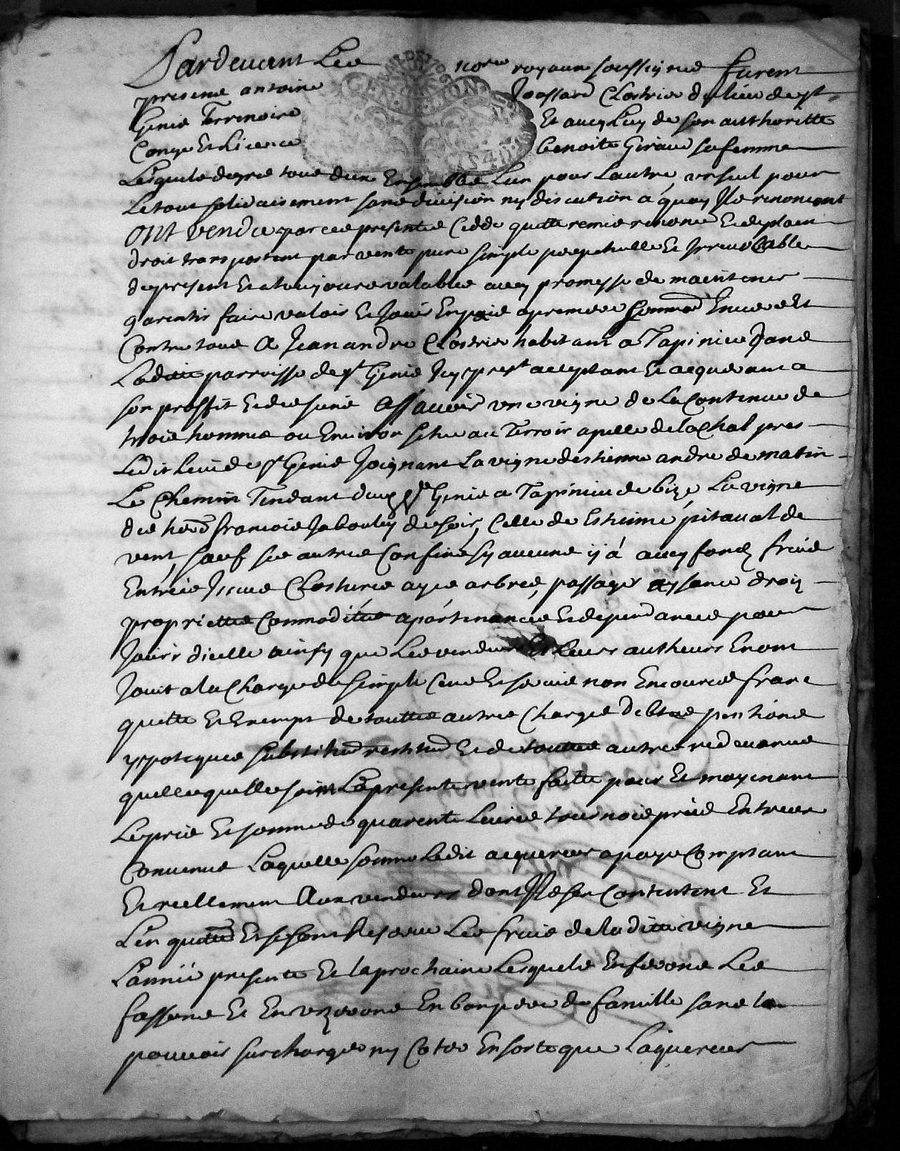 Pardevant Les nore royaux soussignes furent
presens antoine Joassard Clostrier du lieu de st
Genis Terrenoire Et avec luy de son authoritte
Conge Et Licence benoite Giraud sa femme
Lesquels degres tous deux Ensemble Lun pour Lautre, un seul pour
Le tout solidairement sans division ny discution a quoy Ils renoncent
ONT VENDU par ces presentes Cedde quitte remis renonce Et de plain
droit transportent par vente pure simple perpetuelle Et Irrevocable
de present Et a toujours valable avec promesse de maintenir
garentir faire valoir Et Jouir En paix a premiere sommaon Envers Et
Contre tous A Jean andre Clostrier habitant a Tapinieu dans
Ladite parroisse de st Genis Icy prest acceptant Et acquerant a
son proffit Et des siens Assavoir une vigne de La Continue de
trois hommes ou Environ sittue au Terroir apelle de la Chal pres
Ledit Lieu de st Genis Joignant La vigne destienne andre de matin
Le Chemin Tendant dud st Genis a Tapinieu de bize La vigne
des hers francois Jaboulay de soir, Celle de Estienne pitaval de
vent, sauf ses autres Confins sy aucuns y a avec fonds fruis
Entrees Issues Clostures ayes arbres, passages aysance droiz
proprietes Commodites apartenances Et dependances pour
Jouir dicelle ainsy que Les vendeurs Et Leurs autheurs En ont
Jouit a la Charge du simple Cens Et servis non Encourus franc
quitte Et Exempt de touttes autres Charges debtes pentions
ypoteques substitud restitud Et de touttes autres redevances
quelles quelles soint La presente vente faitte pour Et moyenant
Le pris Et somme de quarente Livres tournois pris Entreux
Convenus Laquelle somme Ledit acquereur a paye Comptant
Et reellement Aux vendeurs dont Ils se Contentent Et
Len quittent Et se sont Reserve Les fruis de ladite vigne
Lannee presente Et la prochaine Lesquels En feront Les
fassons Et En useront En bon pere de famille sans la
pouvoir surcharger ny Coter En sorte que Laquereur